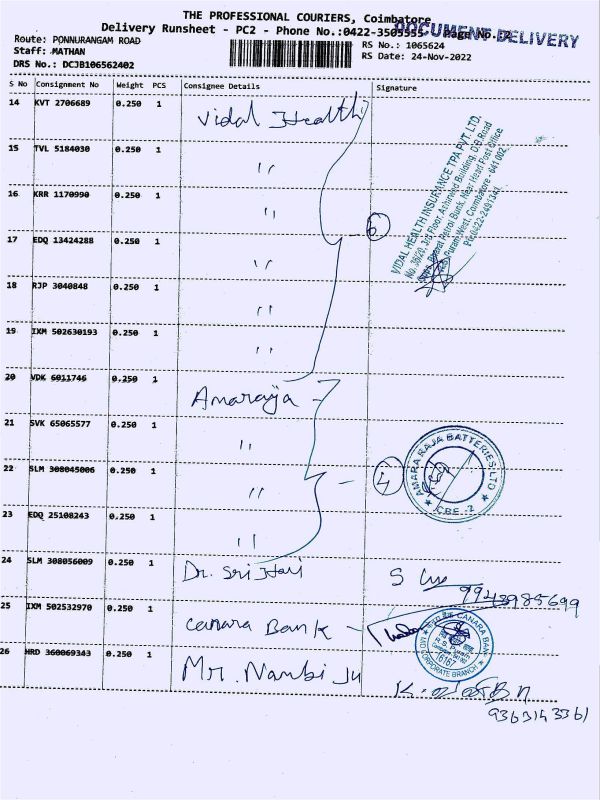 THE PROFESSIONAL COURIERS, Coimbatore
Delivery Runsheet - PC2 - Phone No.:0422-3505555 Page No.:2
DOCUMENT DELIVERY
Route: PONNURANGAM ROAD
Staff: MATHAN
RS No.: 1065624
DRS No.: DCJB106562402
RS Date: 24-Nov-2022
S No Consignment No Weight PCS Consignee Details Signature
14 KVT 2706689 0.250 1 Vidal Health
15 TVL 5184030 0.250 1 "
16 KRR 1170990 0.250 1 "
6
17 EDQ 13424288 0.250 1 "
18 RJP 3040848 0.250 1 "
19 IXM 502630193 0.250 1 "
VIDAL HEALTH INSURANCE TPA PVT. LTD.
No. 3rd Floor, Building, D.B.Road
Near Head Post Office
West, Coimbatore - 641 002.
20 VDK 6911746 0.250 1 Amararaja
21 SVK 65065577 0.250 1 "
22 SLM 308045006 0.250 1 " - 4
AMARA RAJA BATTERIES LTD
CBE -2
23 EDQ 25108243 0.250 1 "
24 SLM 308056009 0.250 1 Dr. Sri Hari
9943985699
25 IXM 502532970 0.250 1 Canara Bank -
CANARA BANK
CORPORATE BRANCH
26 HRD 360069343 0.250 1 Mr. Nambi
9363143361